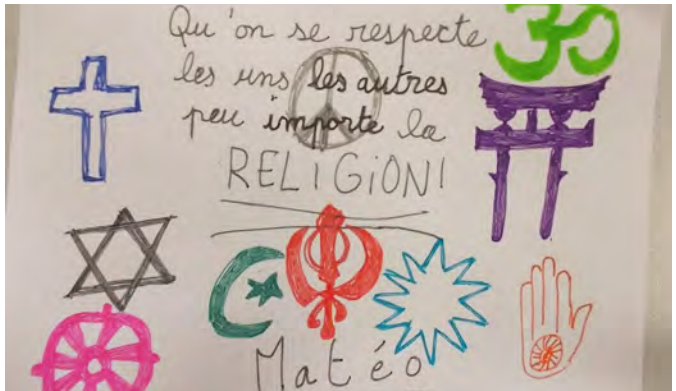 Qu'on se respecte
les uns les autres
peu importe la
RELIGION!
Matéo